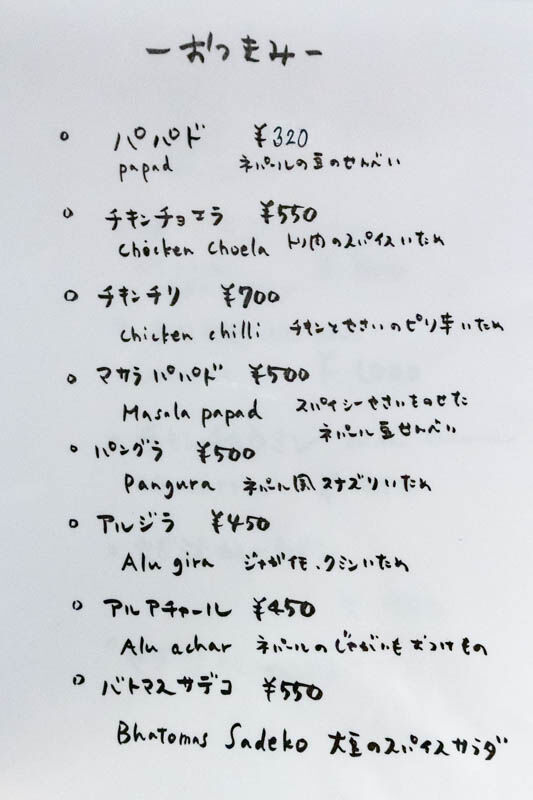 ーおつまみー
パパド ¥320
papad ネパールの豆のせんべい
チキンチョエラ ¥550
Chicken Choela トリ肉のスパイスいため
チキンチリ ¥700
Chicken chilli チキンとやさいのピリ辛いため
マサラパパド ¥500
Masala papad スパイシーやさいものせた
ネパール豆せんべい
パングラ ¥500
Pangura ネパール風スナズリいため
アルジラ ¥450
Alu gira ジャガイモ、クミンいため
アルアチャール ¥450
Alu achar ネパールのじゃがいもおつけもの
バトマスサデコ ¥550
Bhatomas Sadeko 大豆のスパイスサラダ